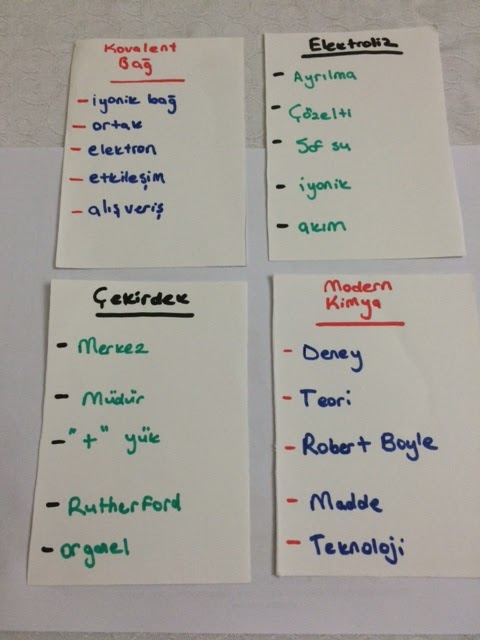 Kovalent
Bağ
- iyonik bağ
- ortak
- elektron
- etkileşim
- alış veriş
Elektroliz
- Ayrılma
- Çözelti
- Saf su
- iyonik
- akım
Çekirdek
- Merkez
- Müdür
- "+" yük
- Rutherford
- organel
Modern
Kimya
- Deney
- Teori
- Robert Boyle
- Madde
- Teknoloji